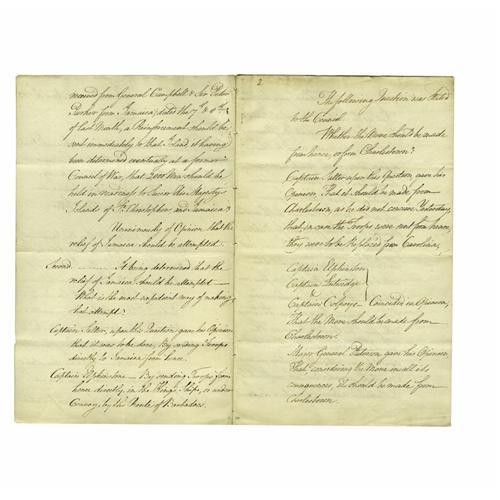 received from General Campbell & Sir Peter
Parker from Jamaica, dated the 7th & 8th
of last Month, a Reinforcement should be
sent immediately to that Island it having
been determined eventually at a former
Council of War, that 2000 Men should be
held in readiness to Secure His Majesty's
Islands of St. Christopher and Jamaica?
Unanimously of Opinion that the
relief of Jamaica should be attempted.
Second It being determined that the
relief of Jamaica should be attempted
What is the most expedient way of making
that attempt?
Captain upon this Question gave his Opinion
that it was to be done, By sending Troops
directly to Jamaica from hence.
Captain Elphinstone By sending Troops from
hence directly, in the Kings Ships, or under
Convoy, by the Route of Barbadoes.
2
The following Question was Stated
to the Council
Whether the Move should be made
from hence, or from Charlestown?
Captain upon this Question, gave his
Opinion, That it should be made from
Charlestown, as he did not conceive Yesterday,
that, in case the Troops were sent from hence,
they were to be Replaced from Carolina.
Captain Elphinston
Captain
Captain Colpoys Coincided in Opinion,
That the Move should be made from
Charlestown.
Major General Paterson gave his Opinion
That considering the Move in all its
consequences, It should be made from
Charlestown.